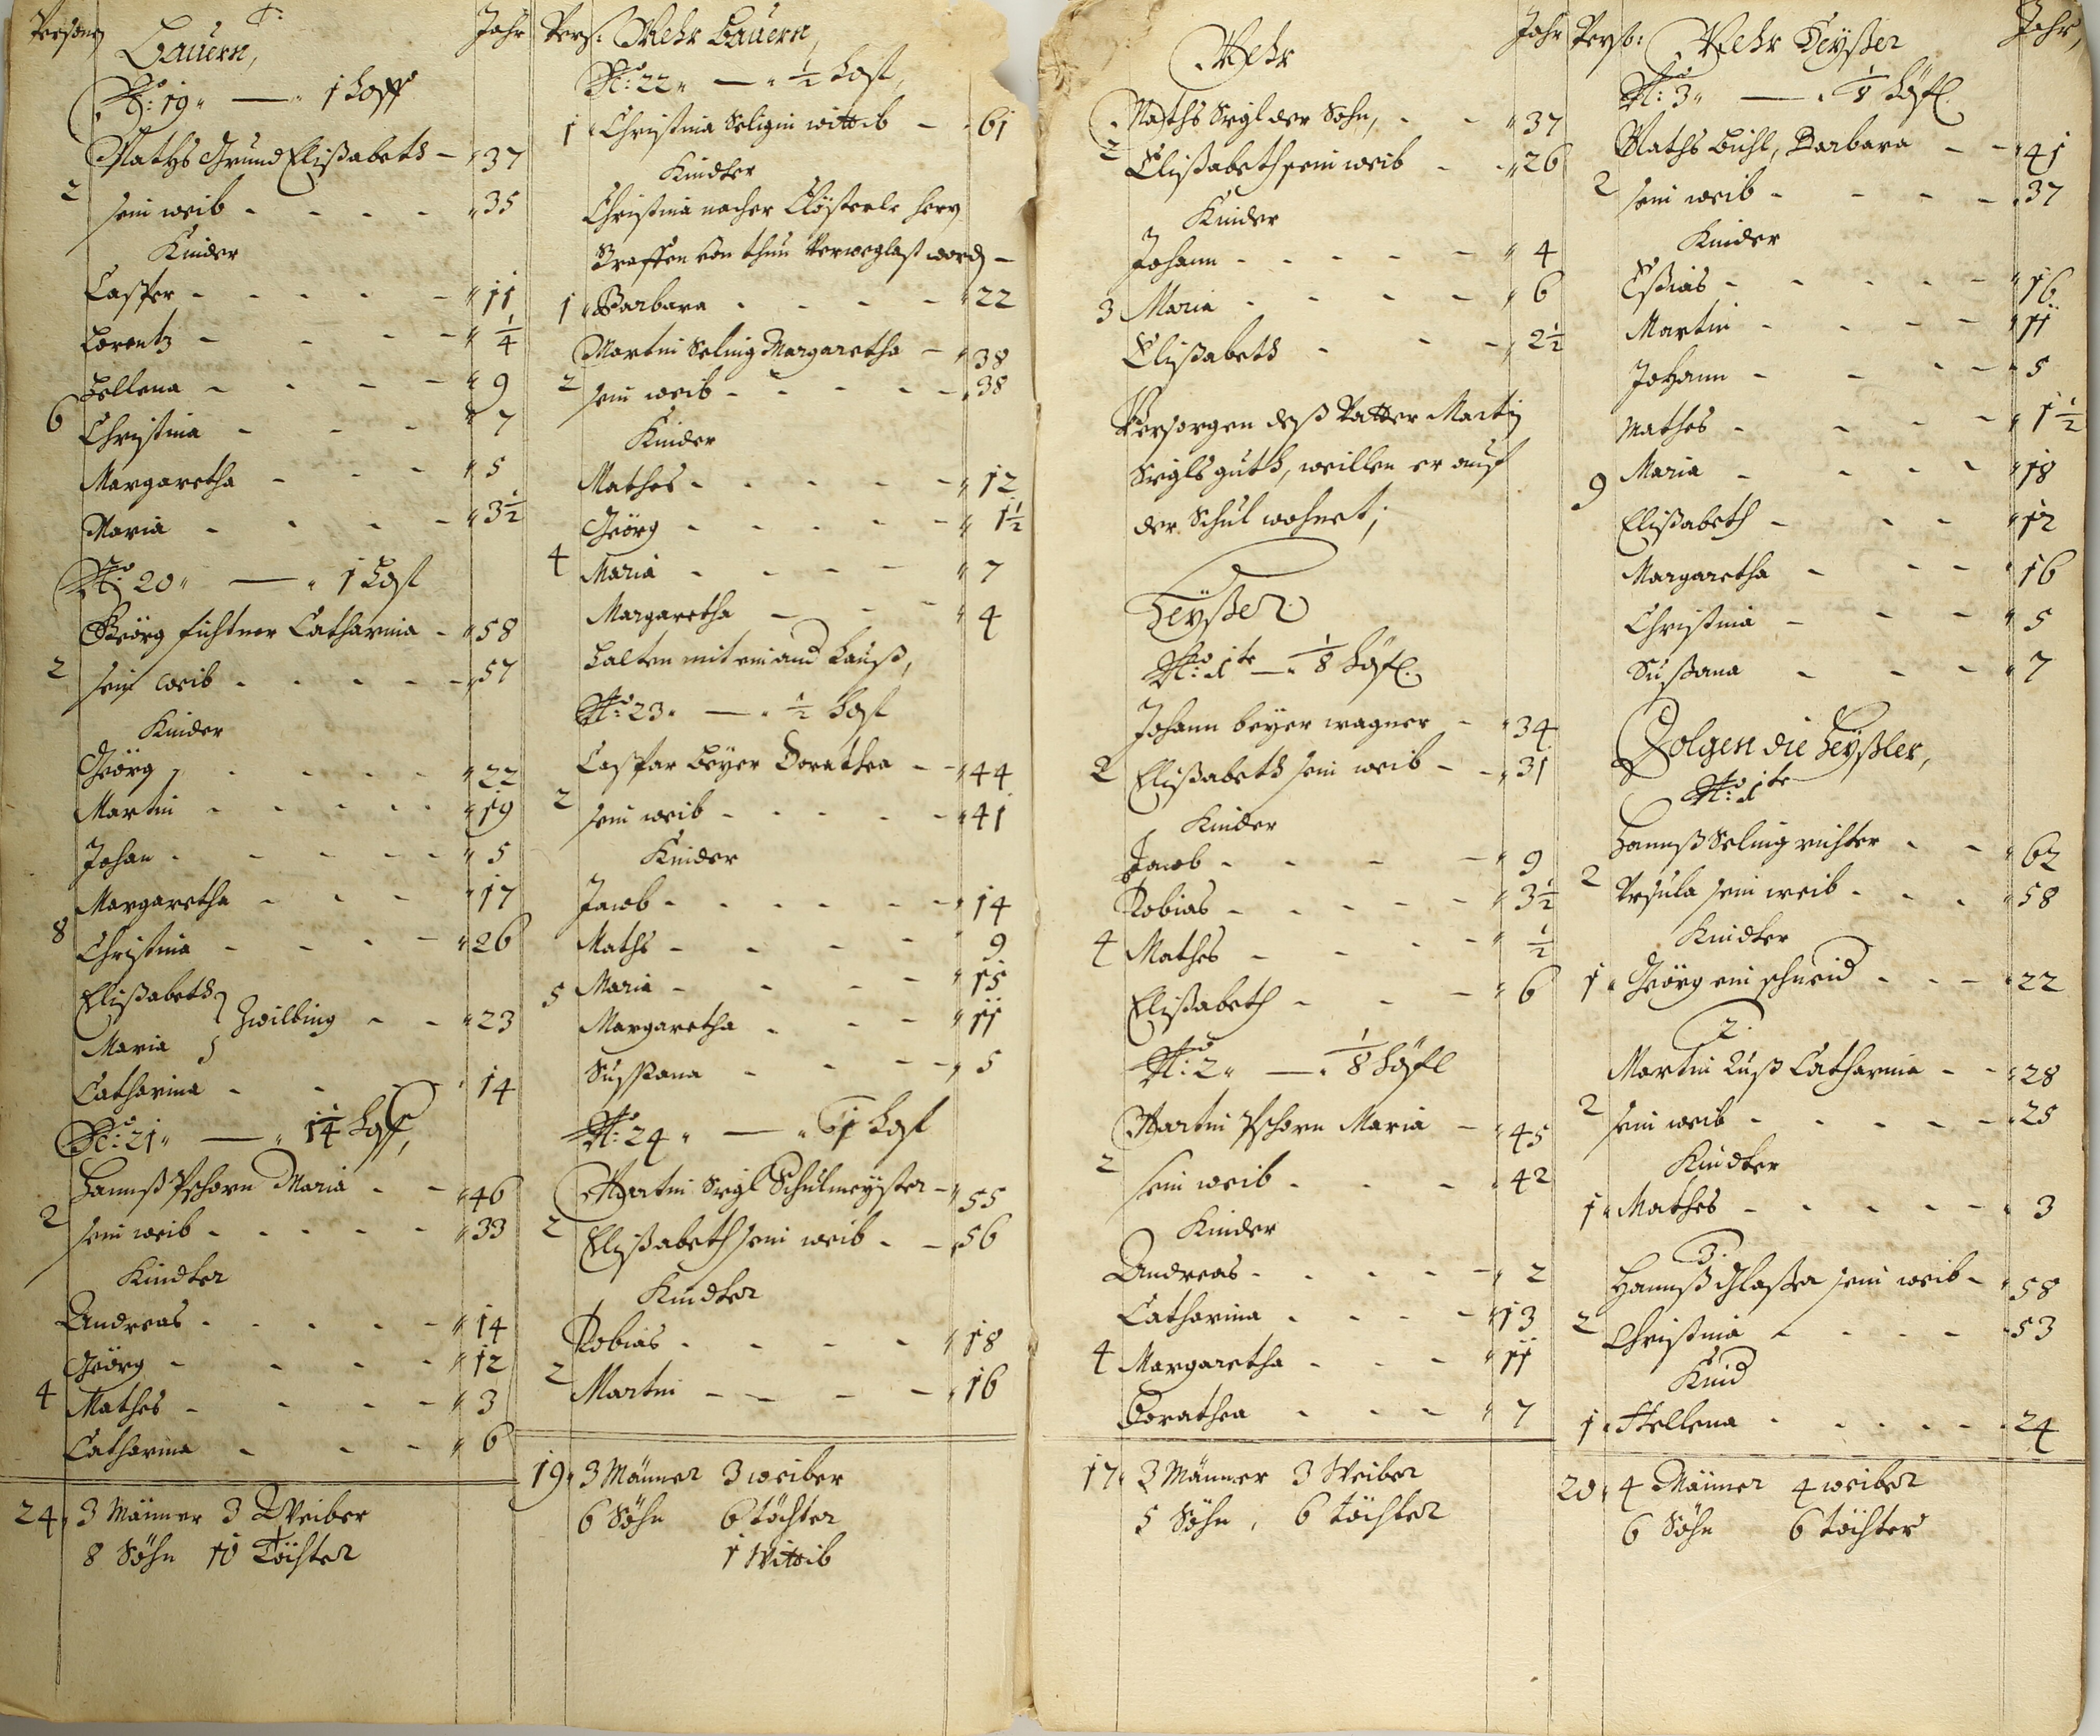 Persohnen Bauern, Jahr
No: 19 " — " 1 Hoff
Mathß Grund Elißabeth - " 37
2 sein weib - - - - " 35
Kinder
Casper - - - - - " 11
Lorentz - - - - " 1/4
Hellena - - - - " 9
6 Christina - - - " 7
Margaretha - - - " 5
Maria - - - - " 3 1/2
No: 20 " — " 1 Hoff
Geörg fichtner Catharina - " 58
2 sein weib - - - - - " 57
Kinder
Geörg - - - - - " 22
Martin - - - - - " 19
Johan - - - - - " 5
Margaretha - - - " 17
8 Christina - - - - " 26
Elißabeth
Maria } Zwilling - - " 23
Catharina - - - " 14
No: 21 " — " 1 1/4 Hoff,
Hannß Pschorn Maria - - " 46
2 sein weib - - - - - " 33
Kindter
Andreas - - - - - " 14
Geörg - - - - " 12
4 Mathes - - - - " 3
Catharina - - - " 6
24 " 3 Männer 3 Weiber
8 Söhn 10 Töchter
Pers: Mehr Bauern,
No: 22 " — " 1/2 Hoff,
1 " Christina Seligin wittib - - " 61
Kindter
Christina nacher Clösterle Herrn
Graffen von thun
1 " Barbara - - - - " 22
Martin Selnig Margaretha - " 38
2 sein weib - - - - - " 38
Kinder
Mathes - - - - - " 12
Geörg - - - - - " 1 1/2
4 Maria - - - - " 7
Margaretha - - - " 4
Halten mit einand Hauß,
No: 23 " — " 1/2 Hoff
Caspar Beyer Dorathea - - " 44
2 sein weib - - - - - " 41
Kinder
Jacob - - - - - - " 14
Maths - - - - " 9
5 Maria - - - - " 15
Margaretha - - - " 11
Sussana - - - - " 5
No: 24 " — " 1 Hoff
Martin Sigl Schulmeyster - " 55
2 Elißabeth sein weib - - " 56
Kindter
Tobias - - - - " 18
2 Martin - - - - " 16
19 " 3 Männer 3 weiber
6 Söhn 6 töchter
1 Wittib
Mehr Jahr
Maths Sigl der Sohn, - - " 37
2 Elißabeth sein weib - - " 26
Kinder
Johann - - - - - " 4
3 Maria - - - - " 6
Elißabeth - - - " 2 1/2
Versorgen deß Vatter Martin
Sigls guth, weillen er auf
der Schul wohnet;
Heyßer
No: 1te — " 1/8 Höfl.
Johann beyer wagner - " 34
2 Elißabeth sein weib - - " 31
Kinder
Jacob - - - - " 9
Tobias - - - - - " 3 1/2
4 Mathes - - - - " 1/2
Elißabeth - - - " 6
No: 2 " — " 1/8 Höfl
Martin Pschorn Maria - " 45
2 sein weib - - - - " 42
Kinder
Andreas - - - - - " 2
Catharina - - - - " 13
4 Margaretha - - - " 11
Dorathea - - - " 7
17 " 3 Männer 3 Weiber
5 Söhn, 6 töchter
Pers: Mehr Heyßer Jahr,
No: 3 " — " 1/8 Höfl.
Maths Bihl, Barbara - - " 41
2 sein weib - - - - " 37
Kinder
Eßias - - - - - " 16
Martin - - - - " 11
Johann - - - - " 5
Mathes - - - - " 1 1/2
9 Maria - - - - " 18
Elißabeth - - - " 12
Margaretha - - - " 16
Christina - - - " 5
Sußana - - - " 7
Folgen die Heyßler,
No: 1te
Hannß Selnig richter - - " 62
2 Ursula sein weib - - - " 58
Kindter
1 " Geörg ein schneid - - - " 22
2.
Martin Luß Catharina - - " 28
2 sein weib - - - - - " 25
Kindter
1 " Mathes - - - - - " 3
3.
Hannß Glaßer sein weib - " 58
2 Christina - - - - " 53
Kind
1 " Hellena - - - - - " 24
20 " 4 Männer 4 weiber
6 Söhn 6 töchter